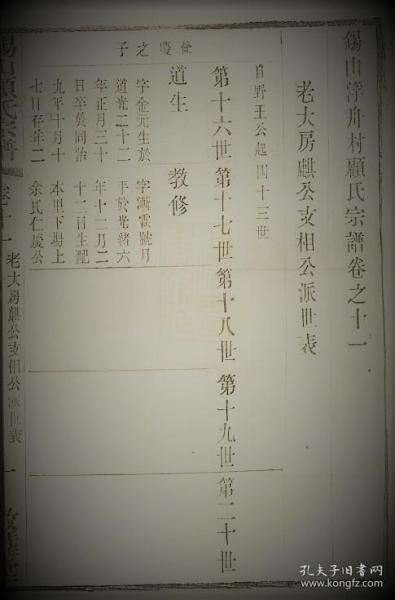 錫山浮舟村顧氏宗譜卷之十一
老大房麒公支相公派世表
自野王公起四十三世
第十六世 第十七世 第十八世 第十九世 第二十世
道生 敎修
之
子
字金元生於
道光二十二
年正月三十
日卒於同治
九年十月十
七日存年二
字漸霱號月
平於光緒六
年十二月二
十二日生配
本里下塲上
余氏仁慶公
錫山顧氏宗譜
卷十一
老大房麒公支相公派世表
一
孔夫子旧书网
www.kongfz.com